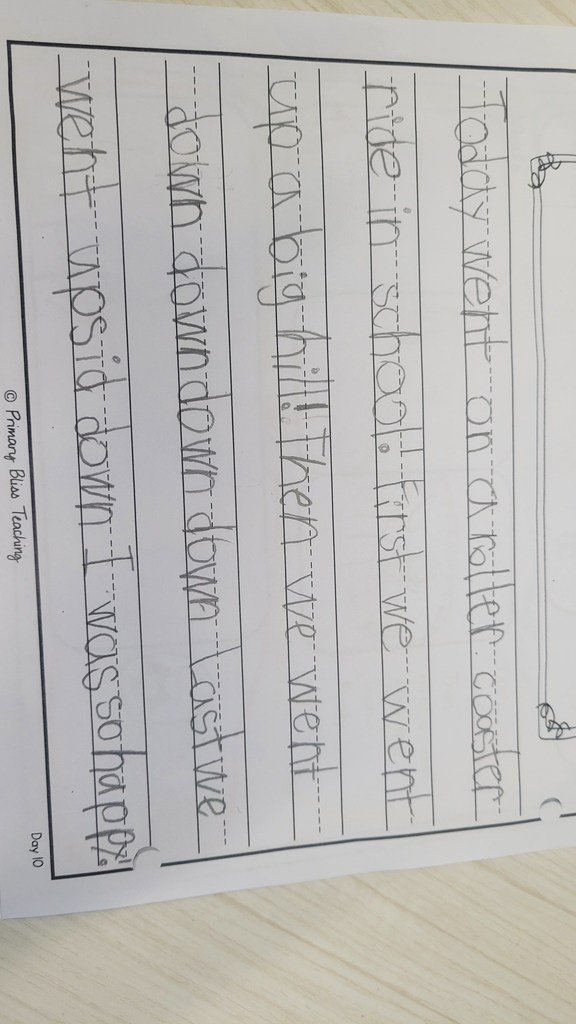 Toddy went on a roller coaster
ride in school. First we went
up a big hill. Then we went
down down down down Last we
went upsid down I was so happy.
© Primary Bliss Teaching
Day 10